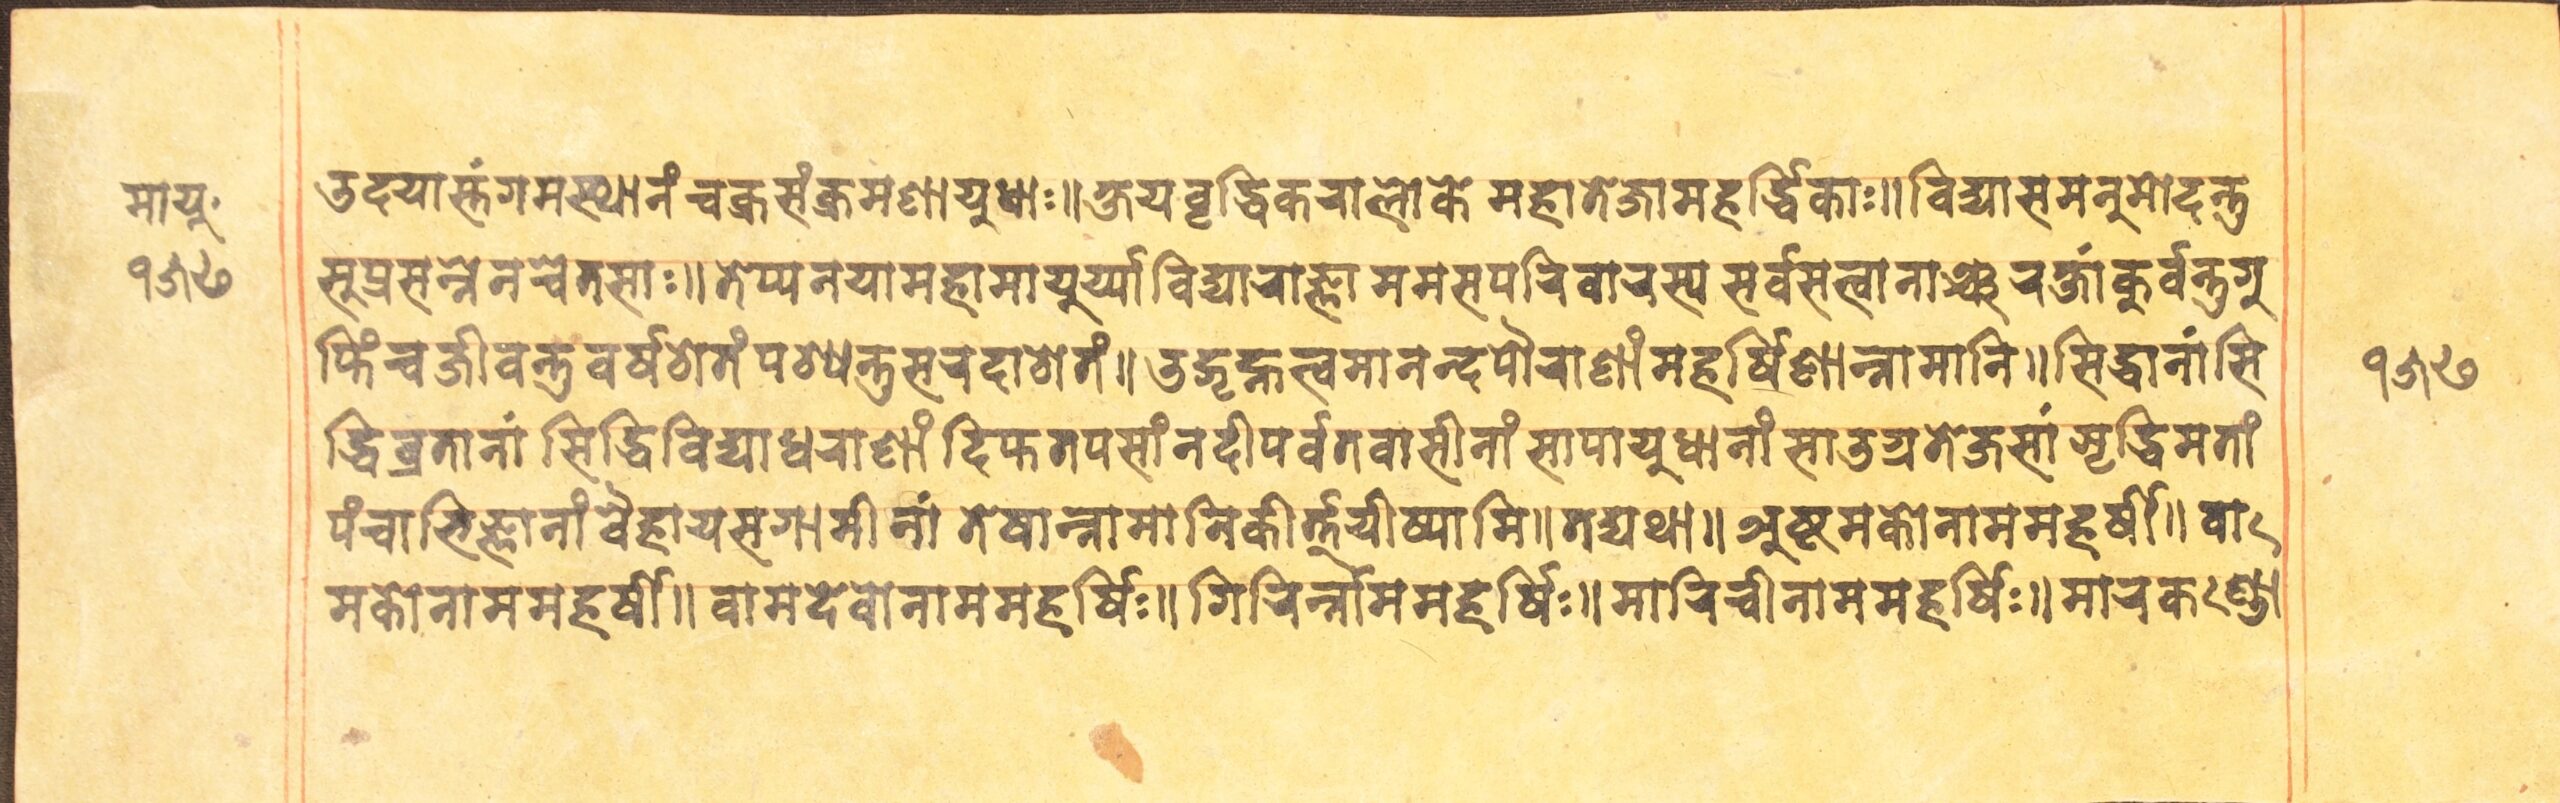 मायु॰
१७७
उदयास्तंगमस्थानं चक्रसंक्रमणायुधाः॥ क्षयवृद्धिकरालोके महातेजामहर्द्धिकाः॥ विद्यासमनुमोदन्तु
सुप्रसन्नेनचेतसाः॥ तेप्यनयामहामायुर्य्याविद्याराज्ञा ममसपरिवारस्य सर्वसत्वानाञ्च रक्षांकुर्वन्तुगु
प्तिंचजीवन्तुवर्षशतं पश्यन्तुसरदाशतं॥ उद्गृह्नत्वमानन्दपौराणांमहर्षिणान्नामानि॥ सिद्धानांसि
द्धिव्रतानां सिद्धिविद्याधराणां दिप्ततपसांनदीपर्वतवासीनां सापायुधानां साउग्रतेजसां ऋद्धिमतां
पंचाभिज्ञानांवैहायसगामीनां तेषान्नामानिकीर्त्तयीष्यामि॥ तद्यथा॥ अष्टमकोनाममहर्षी॥ वा
मकोनाममहर्षी॥ वामदेवोनाममहर्षिः॥ गिरिर्न्नाममहर्षिः॥ मारिचीनाममहर्षिः॥ मारकण्डा
१७७